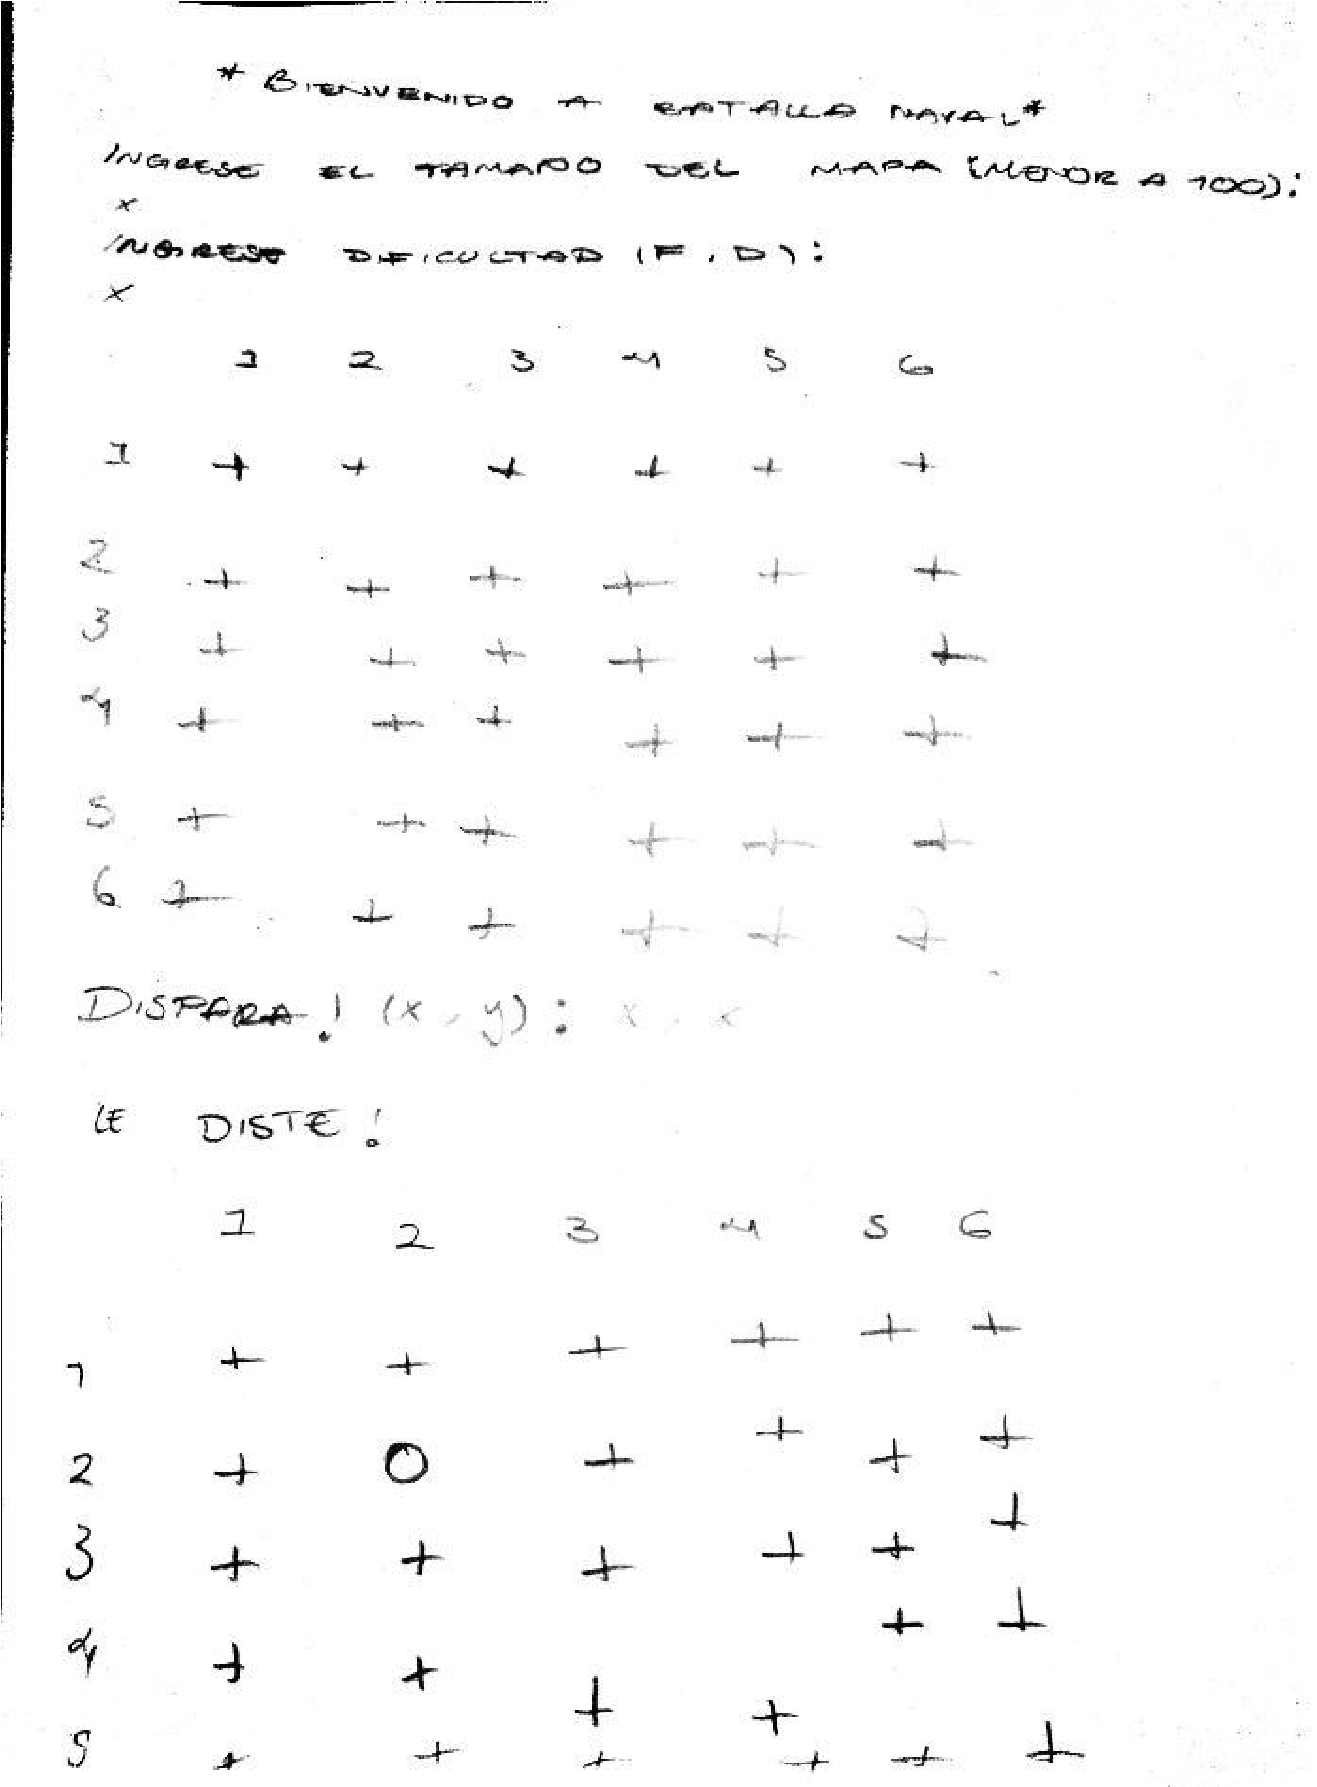 * BIENVENIDO A BATALLA NAVAL*
INGRESE EL TAMAÑO DEL MAPA (MENOR A 100):
x
INGRESE DIFICULTAD (F, D):
x
1 2 3 4 5 6
1 + + + + + +
2 + + + + + +
3 + + + + + +
4 + + + + + +
5 + + + + + +
6 + + + + + +
DISPARA! (x, y): x, x
LE DISTE!
1 2 3 4 5 6
1 + + + + + +
2 + O + + + +
3 + + + + + +
4 + + + + + +
5 + + + + + +